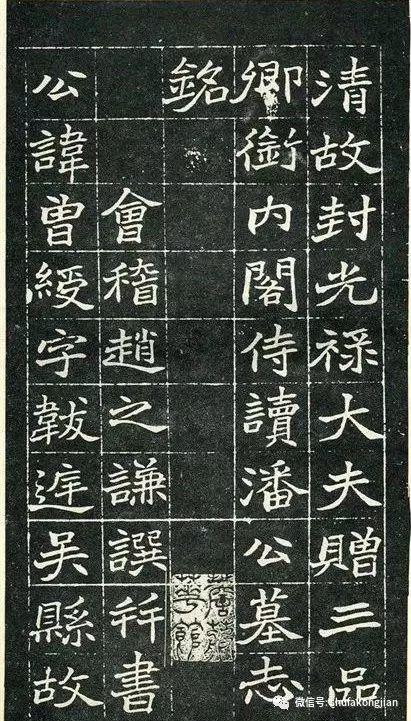 清故封光祿大夫贈三品
卿銜内閣侍讀潘公墓志
銘
會稽趙之謙譔幷書
公諱曾綬字韍庭吳縣故
微信号: